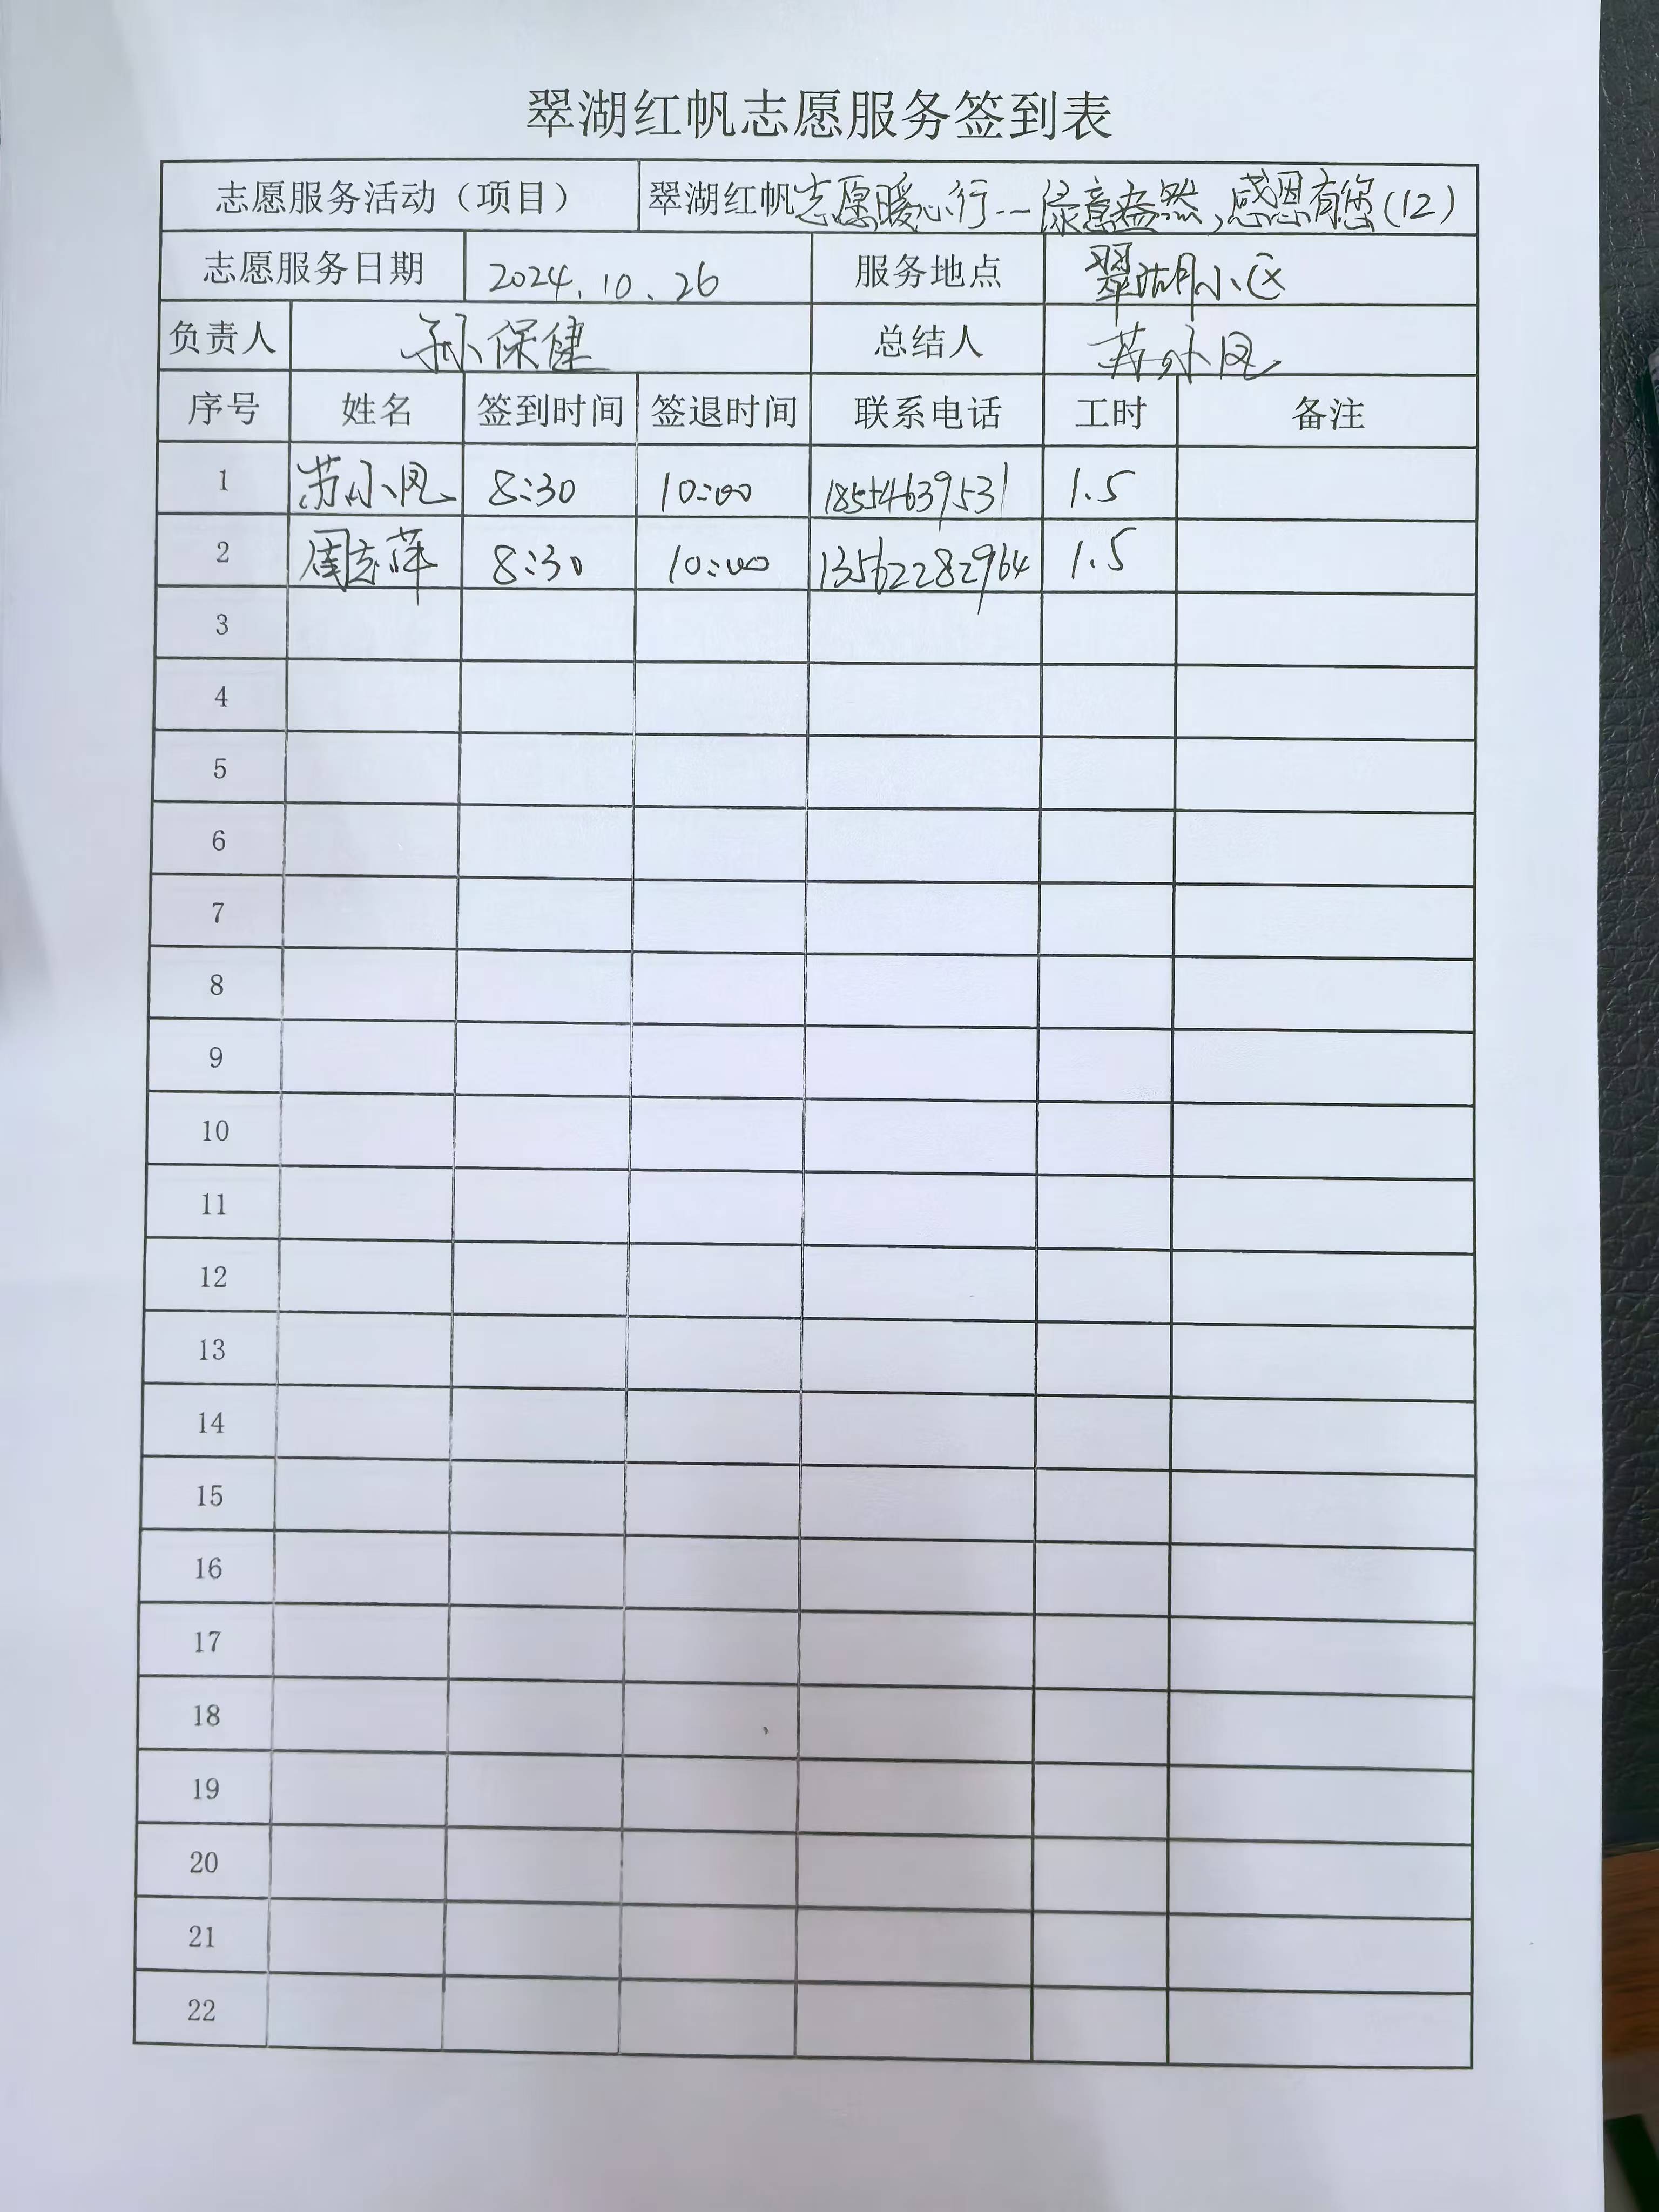 翠湖红帆志愿服务签到表
志愿服务活动（项目） 翠湖红帆志愿暖心行---绿意盎然,感恩有您(12)
志愿服务日期 2024.10.26 服务地点 翠湖小区
负责人 孙保健 总结人 苏小凤
序号 姓名 签到时间 签退时间 联系电话 工时 备注
1 苏小凤 8:30 10:00 18554639531 1.5
2 周志萍 8:30 10:00 13562282964 1.5
3
4
5
6
7
8
9
10
11
12
13
14
15
16
17
18
19
20
21
22